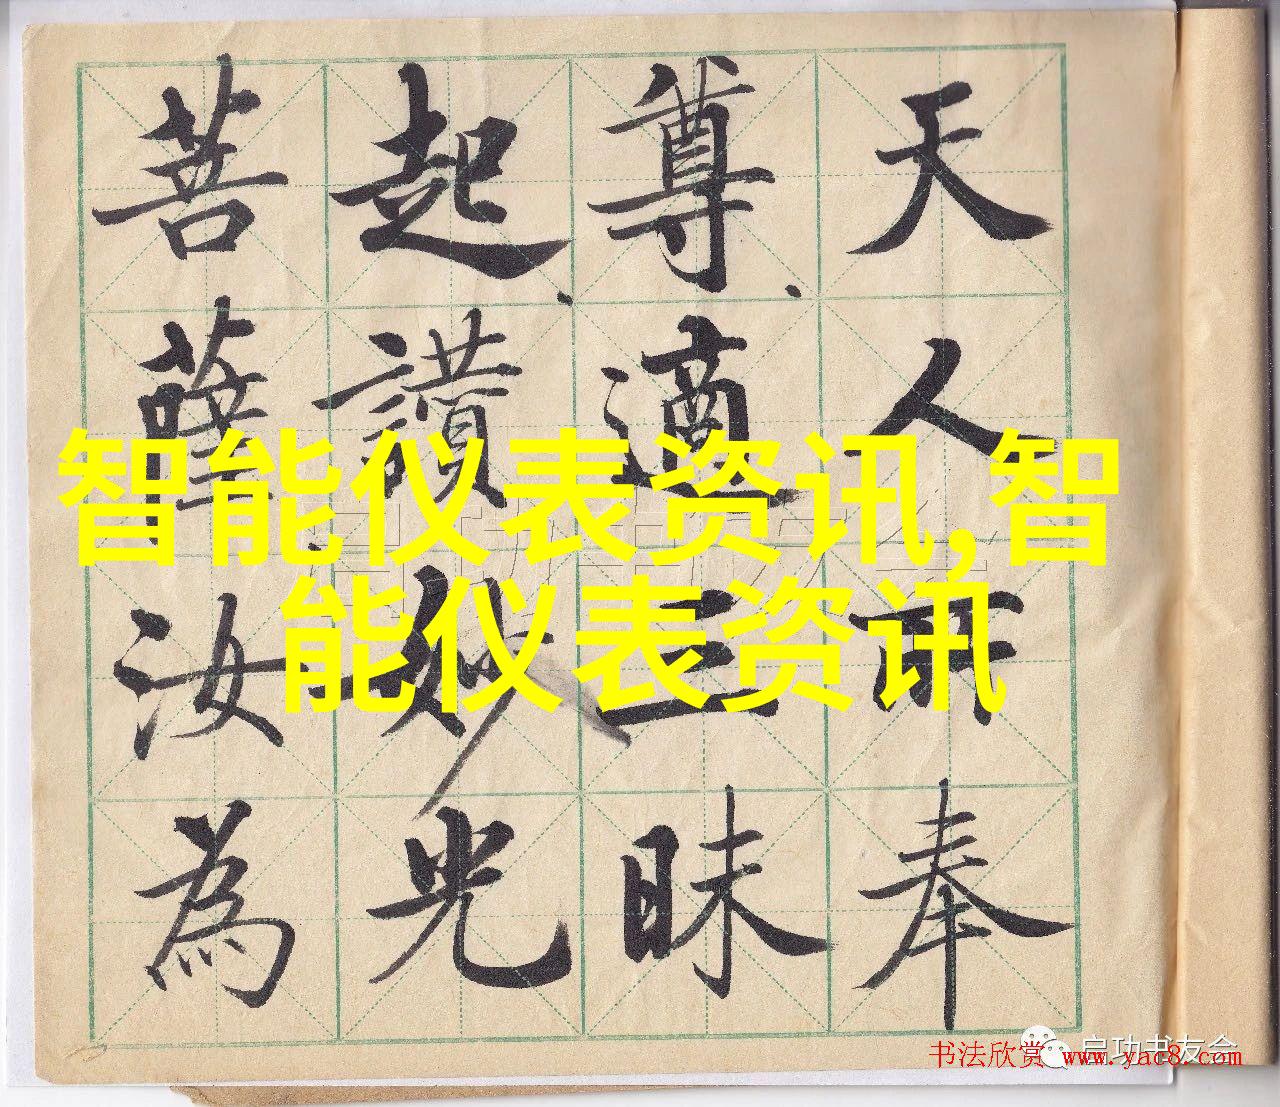 天人所奉
尊、適三昧
起、讚妙光
菩薩汝為
智能仪表资讯,智
能仪表资讯
启功书友会
书法欣赏 www.yac8.com